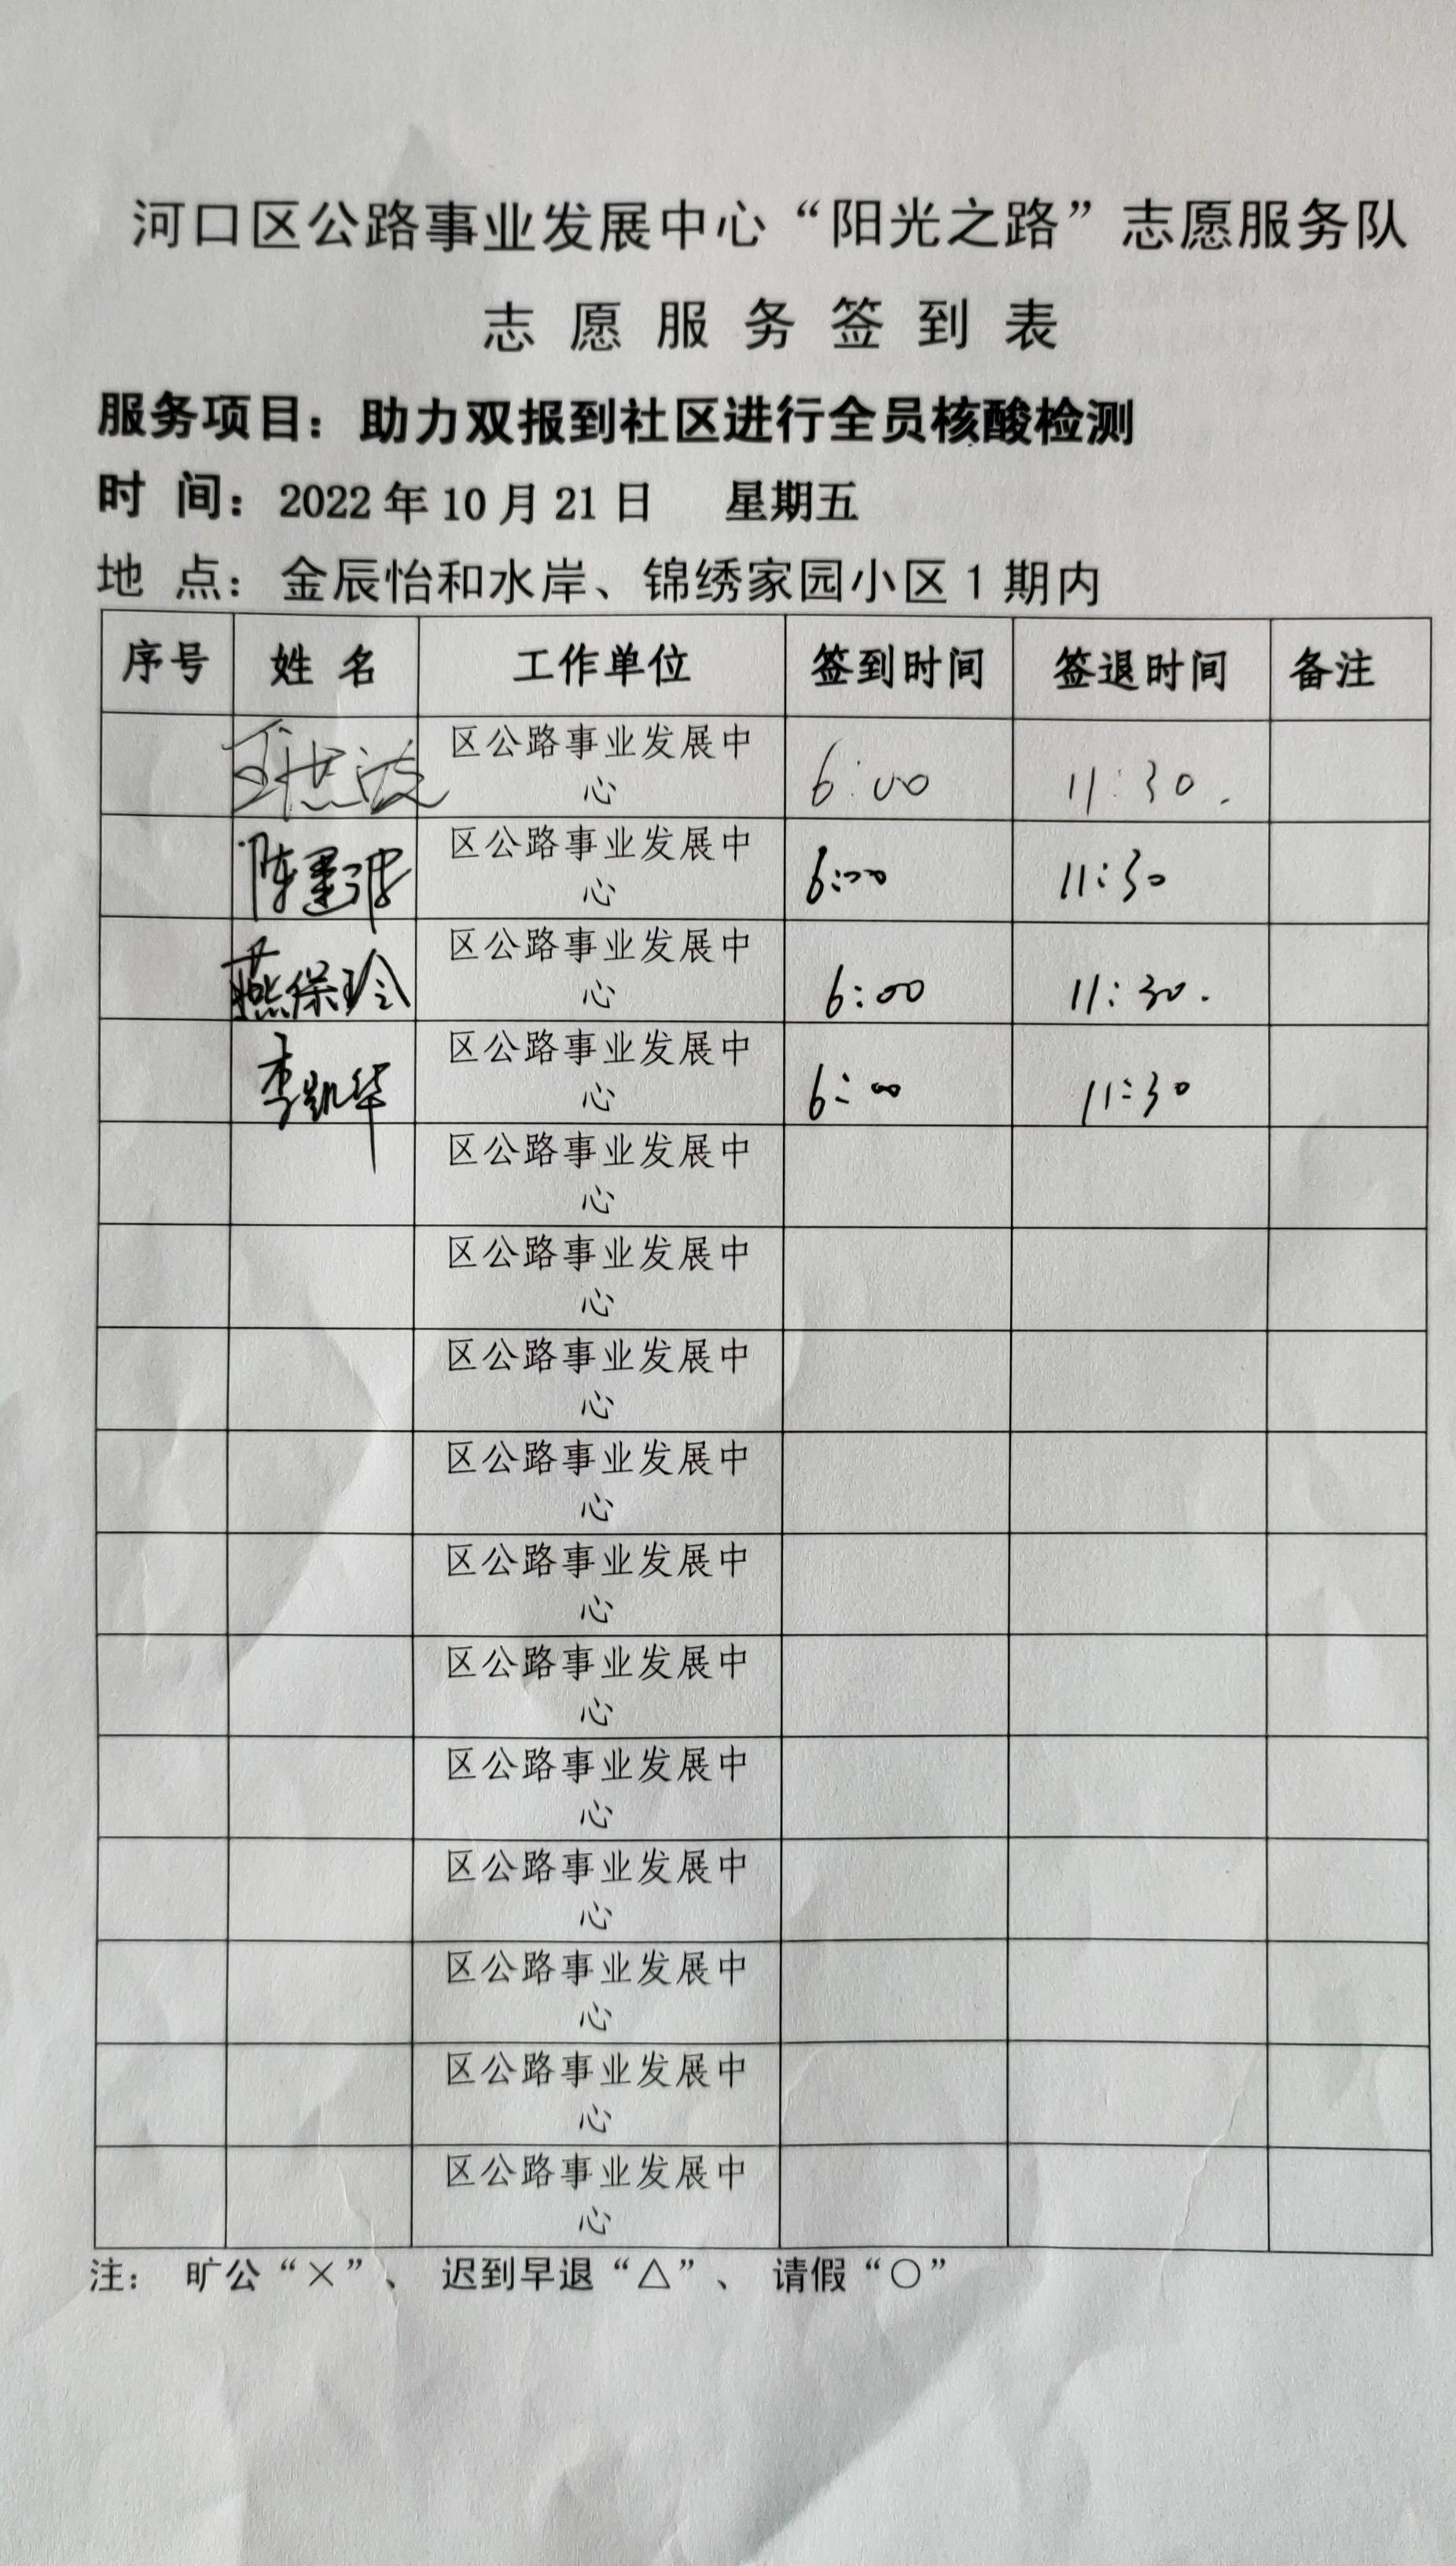 河口区公路事业发展中心“阳光之路”志愿服务队
志愿服务签到表
服务项目：助力双报到社区进行全员核酸检测
时 间：2022年10月21日 星期五
地 点：金辰怡和水岸、锦绣家园小区1期内
序号 姓名 工作单位 签到时间 签退时间 备注
区公路事业发展中
心 6:00 11:30.
区公路事业发展中
陈建 心 6:00 11:30
区公路事业发展中
燕保玲 心 6:00 11:30.
区公路事业发展中
李凯华 心 6:00 11:30
区公路事业发展中
心
区公路事业发展中
心
区公路事业发展中
心
区公路事业发展中
心
区公路事业发展中
心
区公路事业发展中
心
区公路事业发展中
心
区公路事业发展中
心
区公路事业发展中
心
区公路事业发展中
心
区公路事业发展中
心
注： 旷公“×”、 迟到早退“△”、 请假“○”